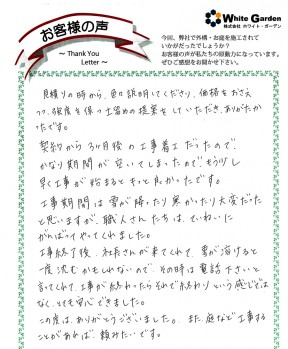 お客様の声
～ Thank You
Letter ～
White Garden
株式会社 ホワイト・ガーデン
今回、弊社で外構・お庭を施工されて
いかがだったでしょうか？
お客様の声が私たちの原動力になっています。
ぜひご感想をお聞かせ下さい。
見積りの時から、色々説明してくださり、価格をおさえ
つつ、強度を保つ土留めの提案をしていただき、ありがたか
ったです。
契約から3ヶ月後の工事着工だったので、
かなり期間が空いてしまったのでもう少し
早く工事が始まるともっと良かったです。
工事期間は雪が降ったり寒かったり大変だった
と思いますが、職人さんたちは、ていねいに
がんばってやってくれました。
工事終了後、社長さんが来てくれて、雪が溶けると
一度沈むかもしれないので、その時は電話下さいと
言ってくれて、工事が終わったらそれで終わりという感じでは
なく、とても安心できました。
この度は、ありがとうございました。また、庭など工事する
ことがあれば、頼みたいです。